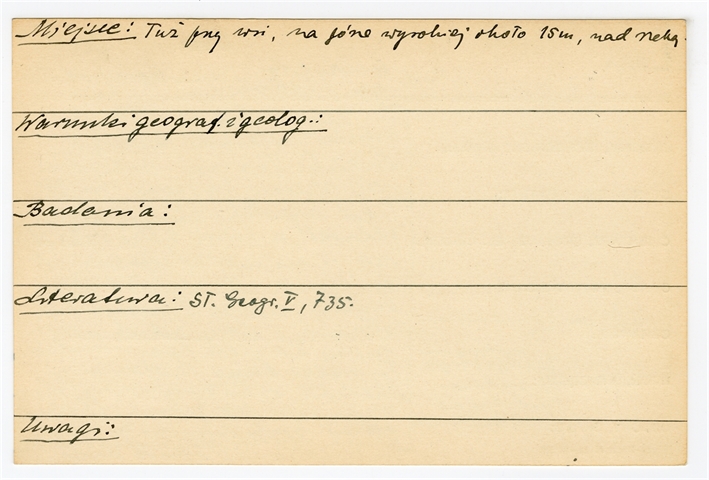 Miejsce: Tuż przy wsi, na górze wysokiej około 15m, nad rzeką.
Warunki geograf. i geolog.:
Badania:
Literatura: Sł. Geogr. V, 735.
Uwagi: